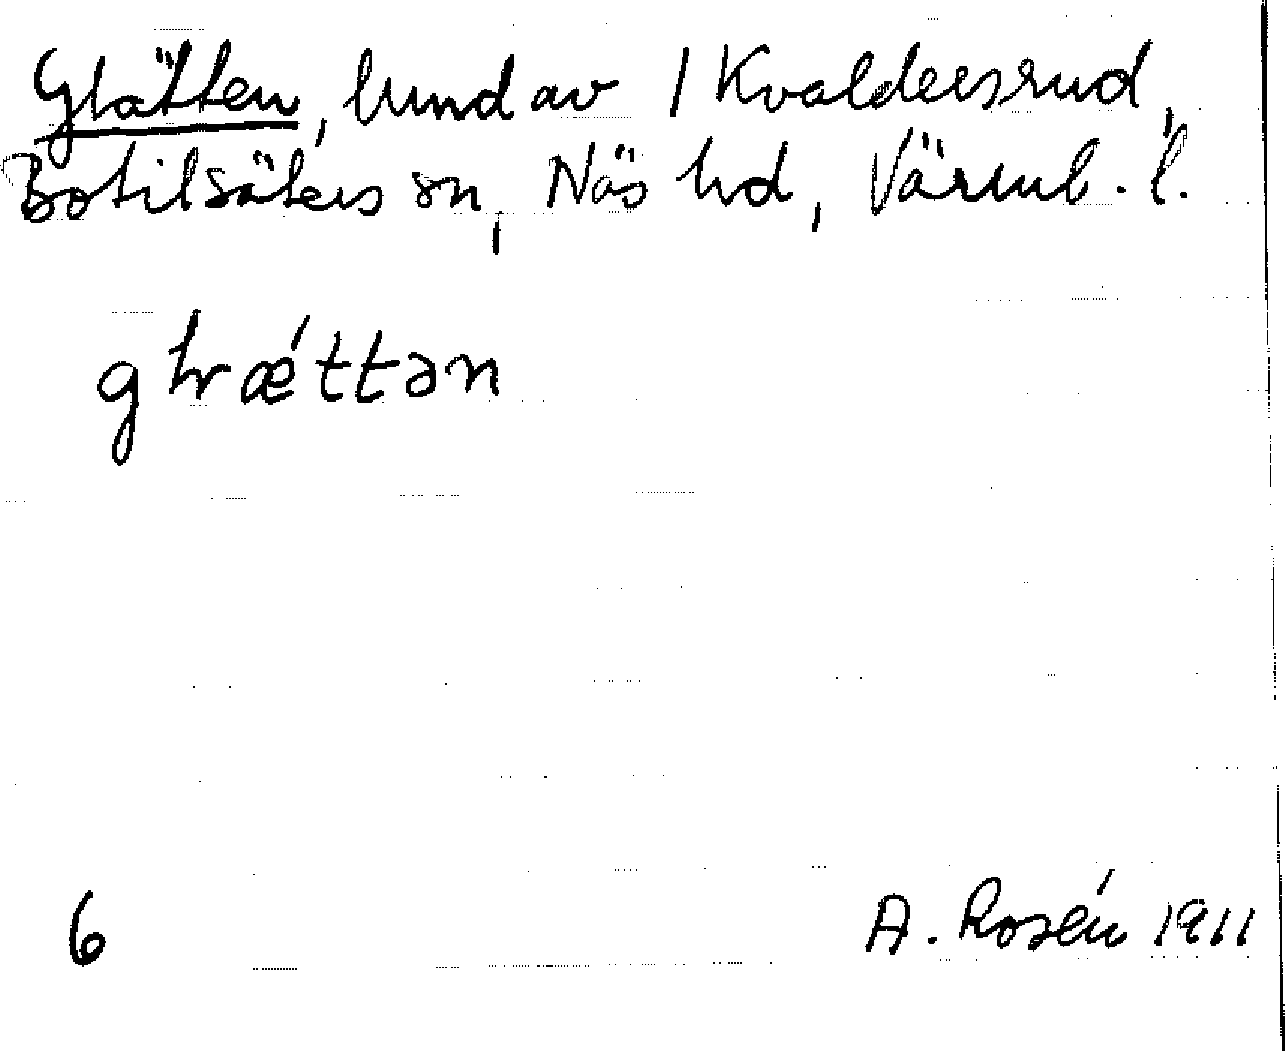 Glätten, lund av 1 Kvaldersrud,
Botilsäters sn, Näs hd, Värml. l.
gɫrǽttən
6
A. Rosén 1911